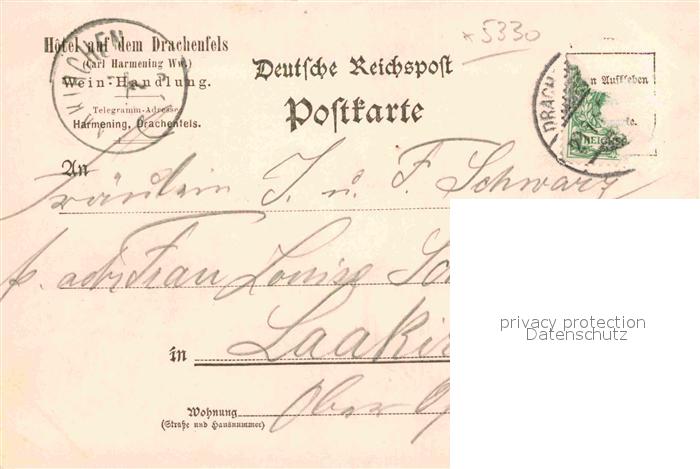 * 5330
Hôtel auf dem Drachenfels
(Carl Harmening Ww.)
Wein-Handlung.
Telegramm-Adresse
Harmening, Drachenfels.
KIRCHEN
Deutsche Reichspost
Postkarte
n Aufkleben
DRACH
REICHSP
An
Fräulein J. u. F. Schwarz
Frau Louise
in Laakir
Ober
Wohnung
(Straße und Hausnummer)
privacy protection
Datenschutz